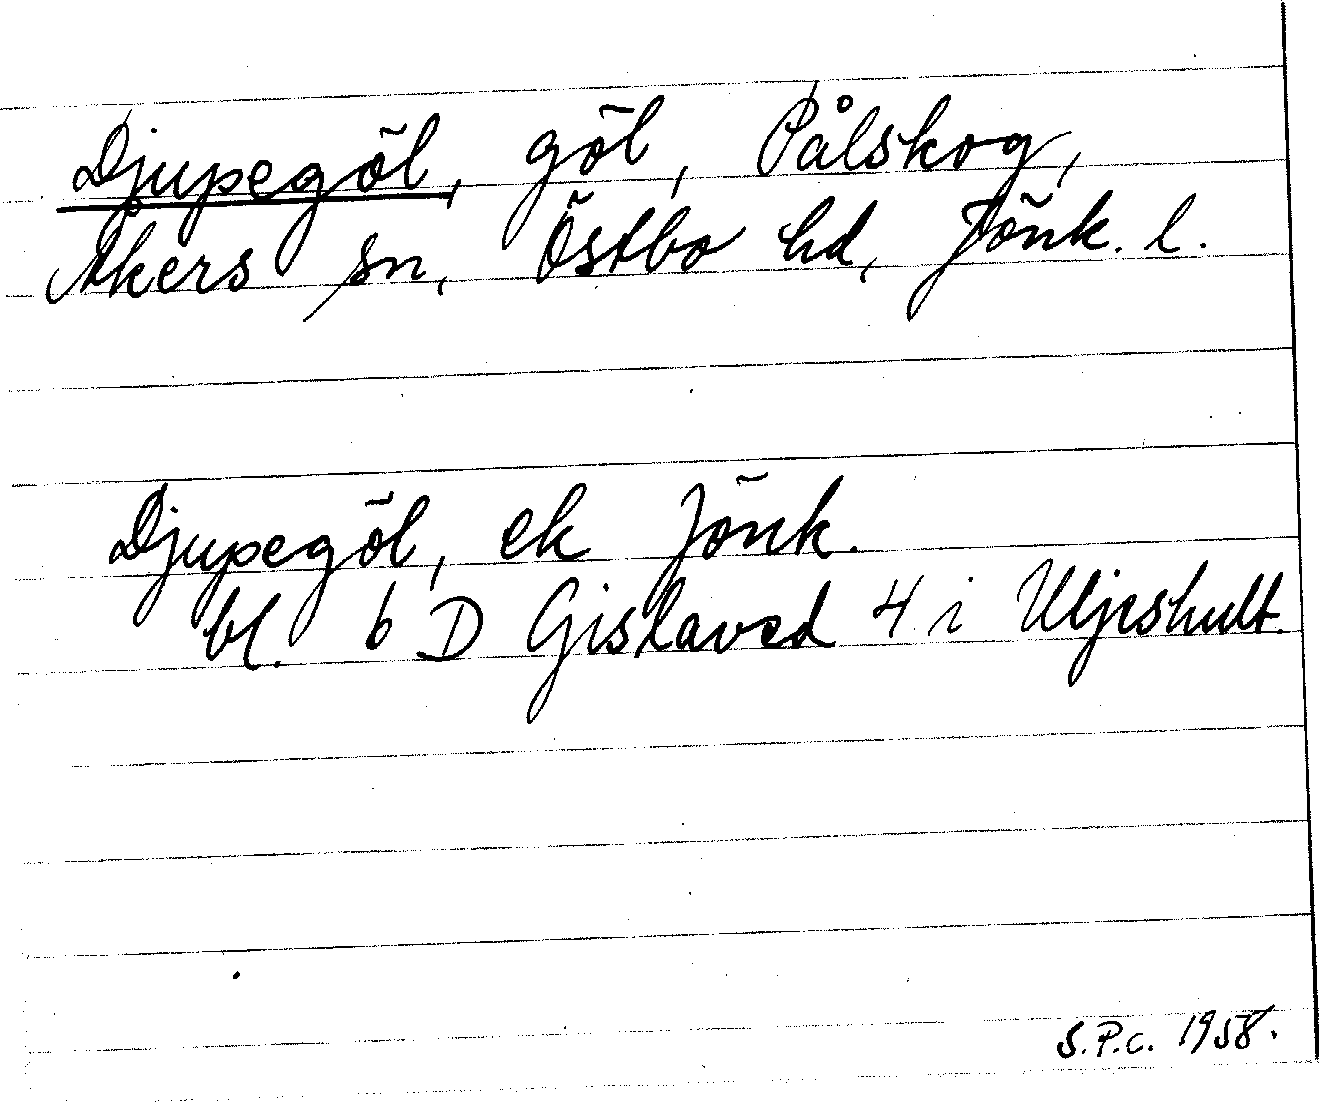 Djupegöl, göl, Pålskog,
Åkers sn, Östbo hd, Jönk. l.
Djupegöl, ek Jönk.
bl. 6 D Gislaved 4 i Uljeshult.
S.P.C. 1958.